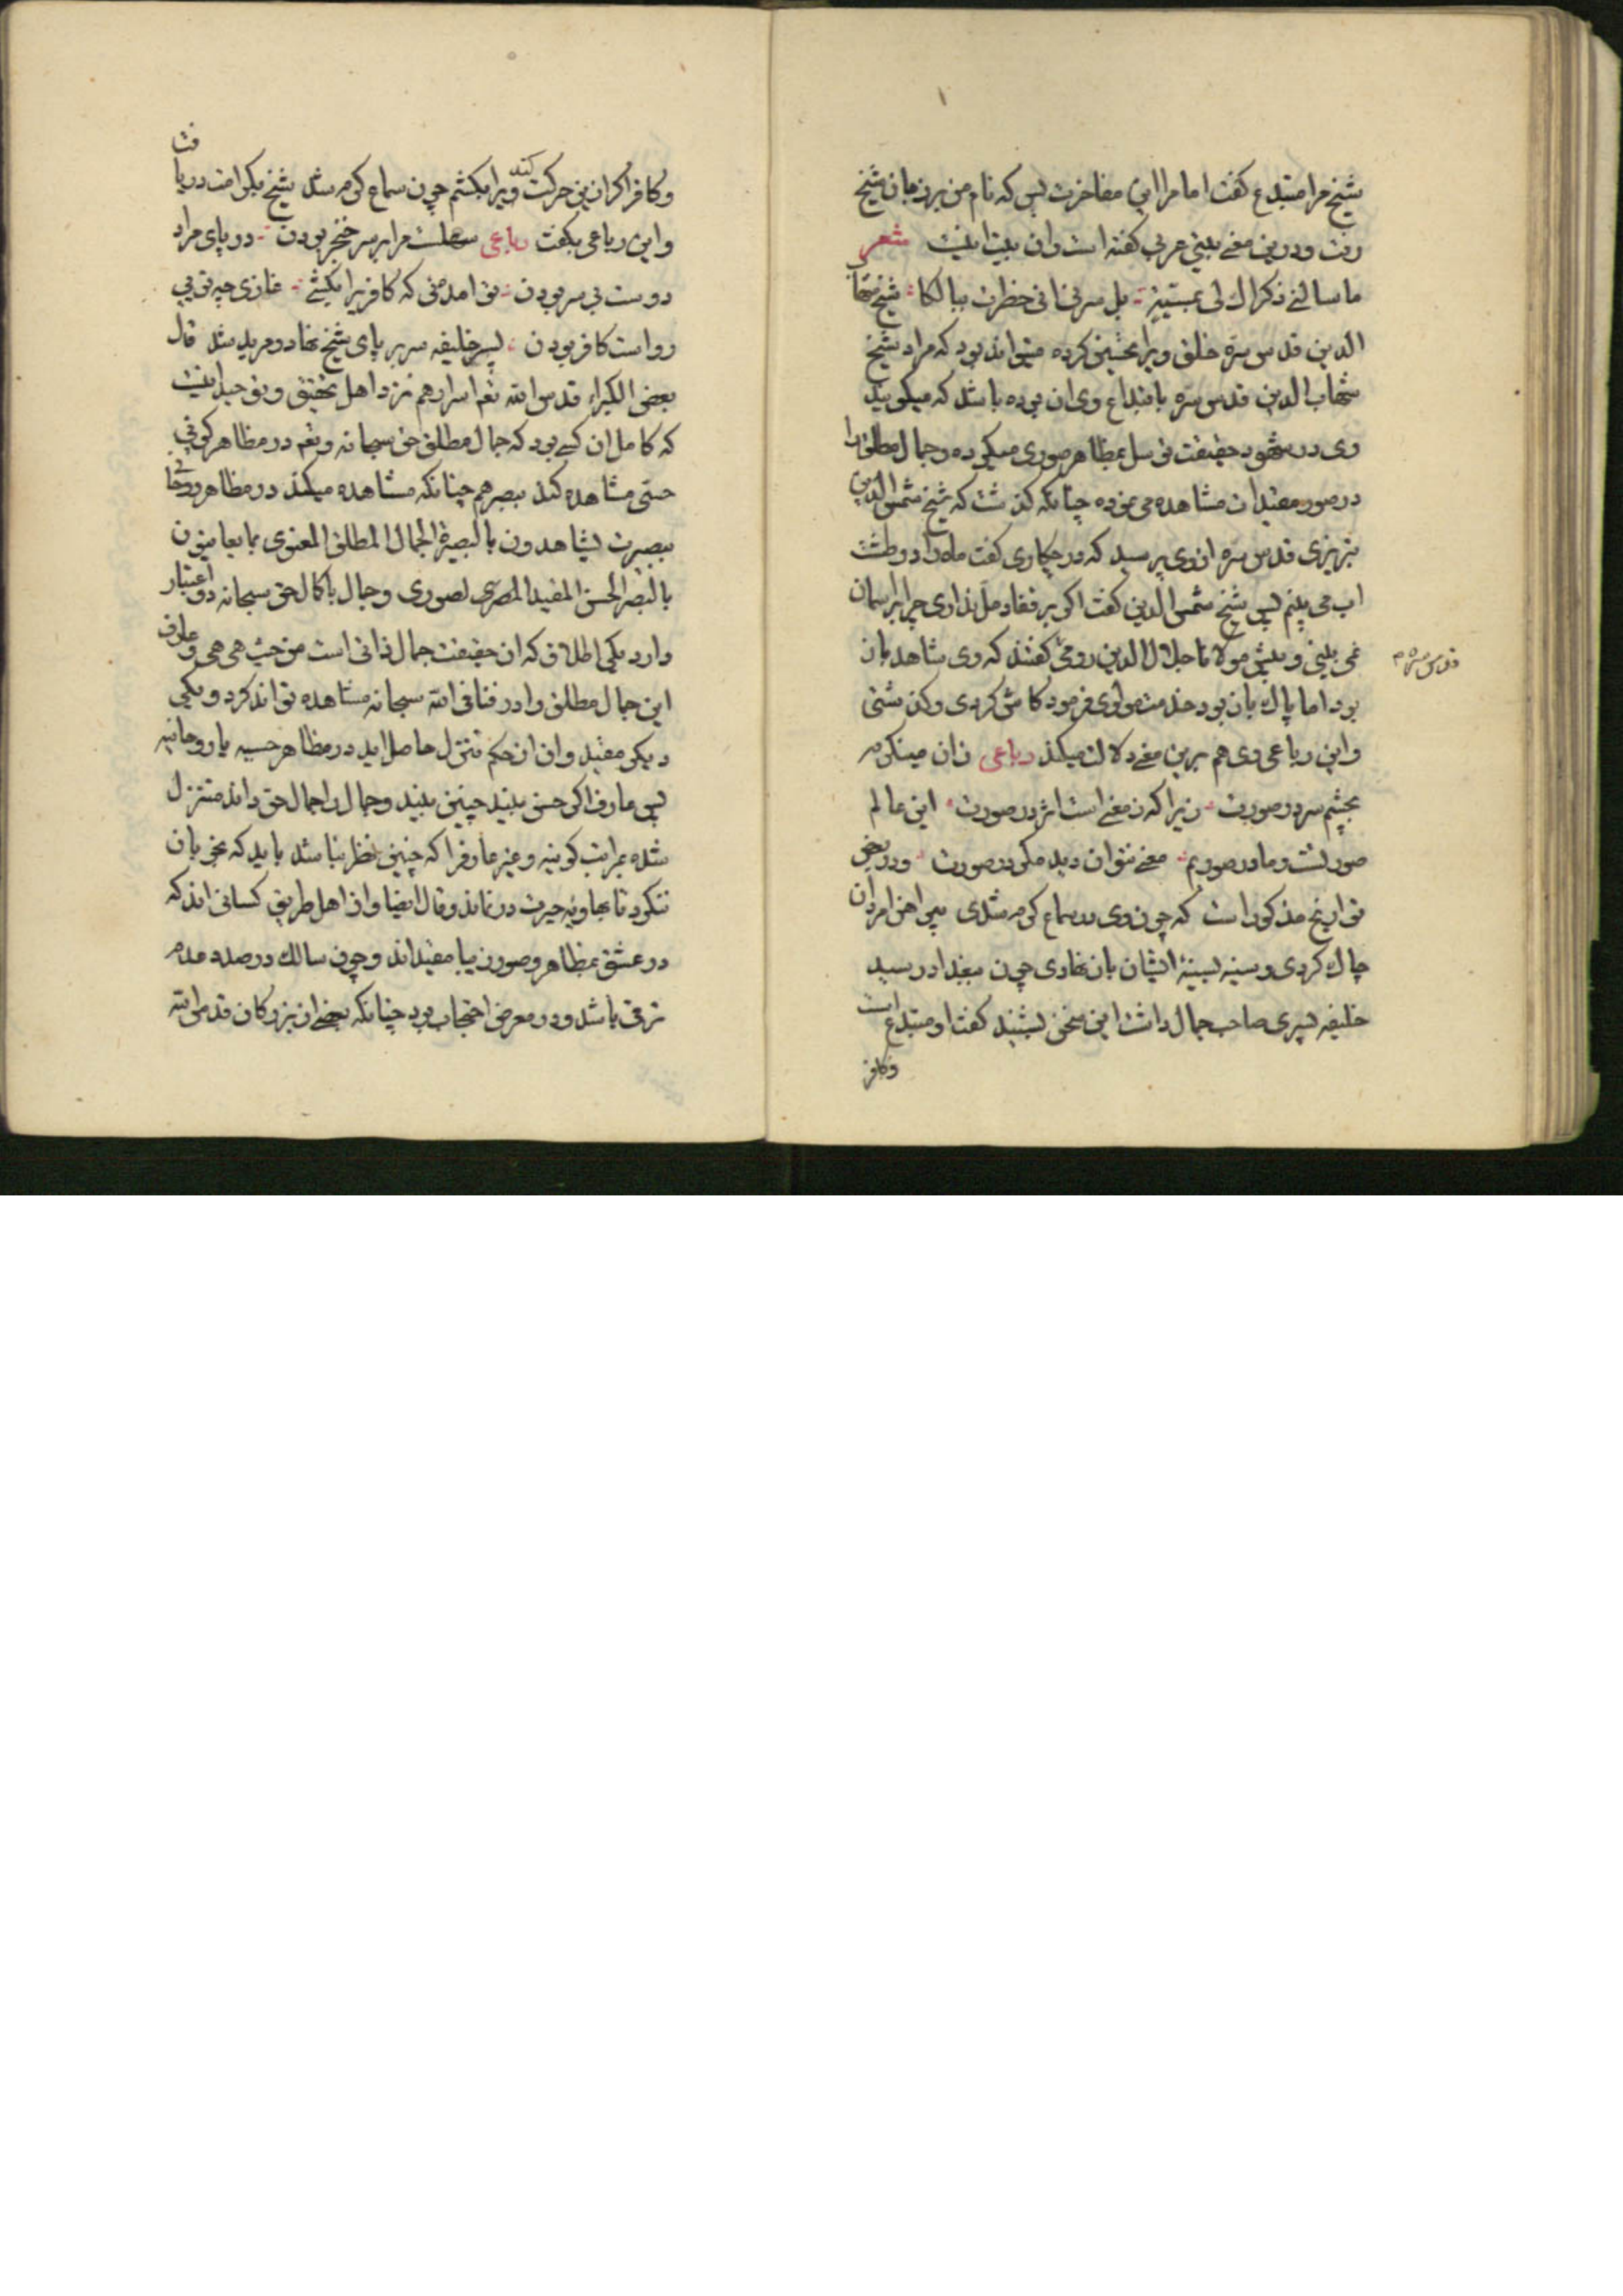 شیخ مرا مبتدع گفت اما مرا این مفاخرت بس که نام من بر زبان شیخ
رفت ودرین معنی بیتی عربی گفته است وان بیت اینست شعر
ما سائنی ذکراک لی بمسبّة بل سرنی انی خطرت ببالکا شیخ شهاب
الدین قدس سره خلق ویرا تحسین کرده میتواند بود که مراد شیخ
شهاب الدین قدس سره بابتداع وی ان بوده باشد که میگویند
وی در شهود حقیقت توسل بمظاهر صوری میکرده وجمال مطلق را
در صور مقیدات مشاهده می نموده چنانکه گذشت که شیخ شمس الدین
تبریزی قدس سره از وی پرسید که در چکاری گفت ماه را در طشت
اب می بینم پس شیخ شمس الدین گفت اگر بر قفا دمل نداری چرا بر اسمان
نمی بینی وپیش مولانا جلال الدین رومی گفتند که وی شاهد باز
قدس سره م
بود اما پاک باز بود خدمت مولوی فرمود کاش کردی وگذشتی
واین رباعی وی هم برین معنی دلالت میکند رباعی زان مینگرم
بچشم سر در صورت زیرا که ز معنی است اثر در صورت این عالم
صورتست وما در صوریم معنی نتوان دید مگر در صورت ودر بعضی
تواریخ مذکور است که چون وی در سماع گرم شدی پیراهن امردان
چاک کردی وسینه بسینهٔ ایشان باز نهادی چون ببغداد رسید
خلیفه پسری صاحب جمال داشت این سخن بشنید گفت او مبتدع است
وکافر
وکافر اگر ازین حرکت کند ویرا بکشم چون سماع گرم شد شیخ بکرامت دریافت
واین رباعی بگفت رباعی سهلست مرا بر سر خنجر بودن در پای مراد
دوست بی سر بودن تو امدهٔ که کافریرا بکشی غازی چو تویی
رواست کافر بودن پسر خلیفه سر بر پای شیخ نهاد ومرید شد قال
بعض الکبراء قدس الله تعم اسرارهم نزد اهل تحقیق وتوحید اینست
که کامل ان کسی بود که جمال مطلق حق سبحانه وتعم در مظاهر کونی
حسّی مشاهده کند ببصر هم چنانکه مشاهده میکند در مظاهر روحانی
ببصیرت یشاهدون بالبصیرة الجمال المطلق المعنوی بما یعاینون
بالبصر الحسن المقید الصوری وجمال باکمال حق سبحانه دو اعتبار
دارد یکی اطلاق که ان حقیقت جمال ذاتی است من حیث هی هی وعارف
این جمال مطلق را در فنا فی الله سبحانه مشاهده تواند کرد ویکی
دیگر مقید وان از حکم تنزل حاصل اید در مظاهر حسیه یا روحانیه
پس عارف اگر حسن بیند چنین بیند وجمال را جمال حق داند متنزل
شده بمراتب کونیه وغیر عارفرا که چنین نظر نباشد باید که بخوبان
ننگرد تا بهاویه حیرت در نماند وقال ایضا واز اهل طریق کسانی اند که
در عشق بمظاهر وصور زیبا مقیداند وچون سالک در صدد عدم
ترقی باشد ودر معرض احتجاب بود چنانکه بعضی از بزرگان قدس الله